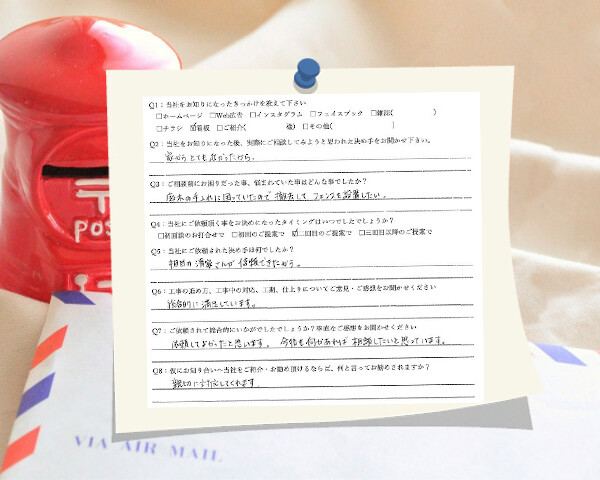 Q1：当社をお知りになったきっかけを教えて下さい
□ホームページ □Web広告 □インスタグラム □フェイスブック □雑誌( )
□チラシ ☑看板 □ご紹介( 様) □その他( )
Q2：当社をお知りになった後、実際にご相談してみようと思われた決め手をお聞かせ下さい。
家からとても近かったから。
Q3：ご相談前にお困りだった事、悩まれていた事はどんな事でしたか？
庭木の手入れに困っていたので 撤去して フェンスを設置したい。
Q4：当社にご依頼頂く事をお決めになったタイミングはいつでしたでしょうか？
□初回談のお打合せで □初回のご提案で ☑二回目のご提案で □三回目以降のご提案で
Q5：当社にご依頼された決め手は何でしたか？
担当の 須賀さんが 信頼できたから。
Q6：工事の進め方、工事中の対応、工期、仕上りについてご意見・ご感想をお聞かせください
総合的に 満足しています。
Q7：ご依頼されて総合的にいかがでしたでしょうか？率直なご感想をお聞かせください
依頼してよかったと思います。 今後も何かあれば 相談したいと思っています。
Q8：仮にお知り合いへ当社をご紹介・お勧め頂けるならば、何と言ってお勧めされますか？
親切に対応してくれます
POS
VIA AIR MAIL